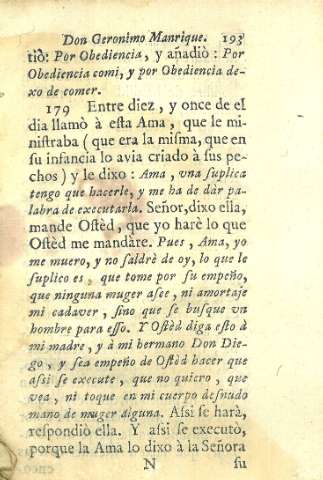 Don Geronimo Manrique. 193
tiò: Por Obediencia, y añadiò: Por
Obediencia comi, y por Obediencia de-
xo de comer.
179 Entre diez, y once de el
dia llamò à esta Ama, que le mi-
nistraba (que era la misma, que en
su infancia lo avia criado à sus pe-
chos) y le dixo: Ama, vna suplica
tengo que hacerle, y me ha de dàr pa-
labra de executarla. Señor, dixo ella,
mande Ostèd, que yo harè lo que
Ostèd me mandàre. Pues, Ama, yo
me muero, y no saldrè de oy, lo que le
suplico es, que tome por su empeño,
que ninguna muger asee, ni amortaje
mi cadaver, sino que se busque vn
hombre para esso. Y Ostèd diga esto à
mi madre, y à mi hermano Don Die-
go, y sea empeño de Ostèd hacer que
assi se execute, que no quiero, que
vea, ni toque en mi cuerpo desnudo
mano de muger alguna. Assi se harà,
respondiò ella. Y assi se executò,
porque la Ama lo dixo à la Señora
N su